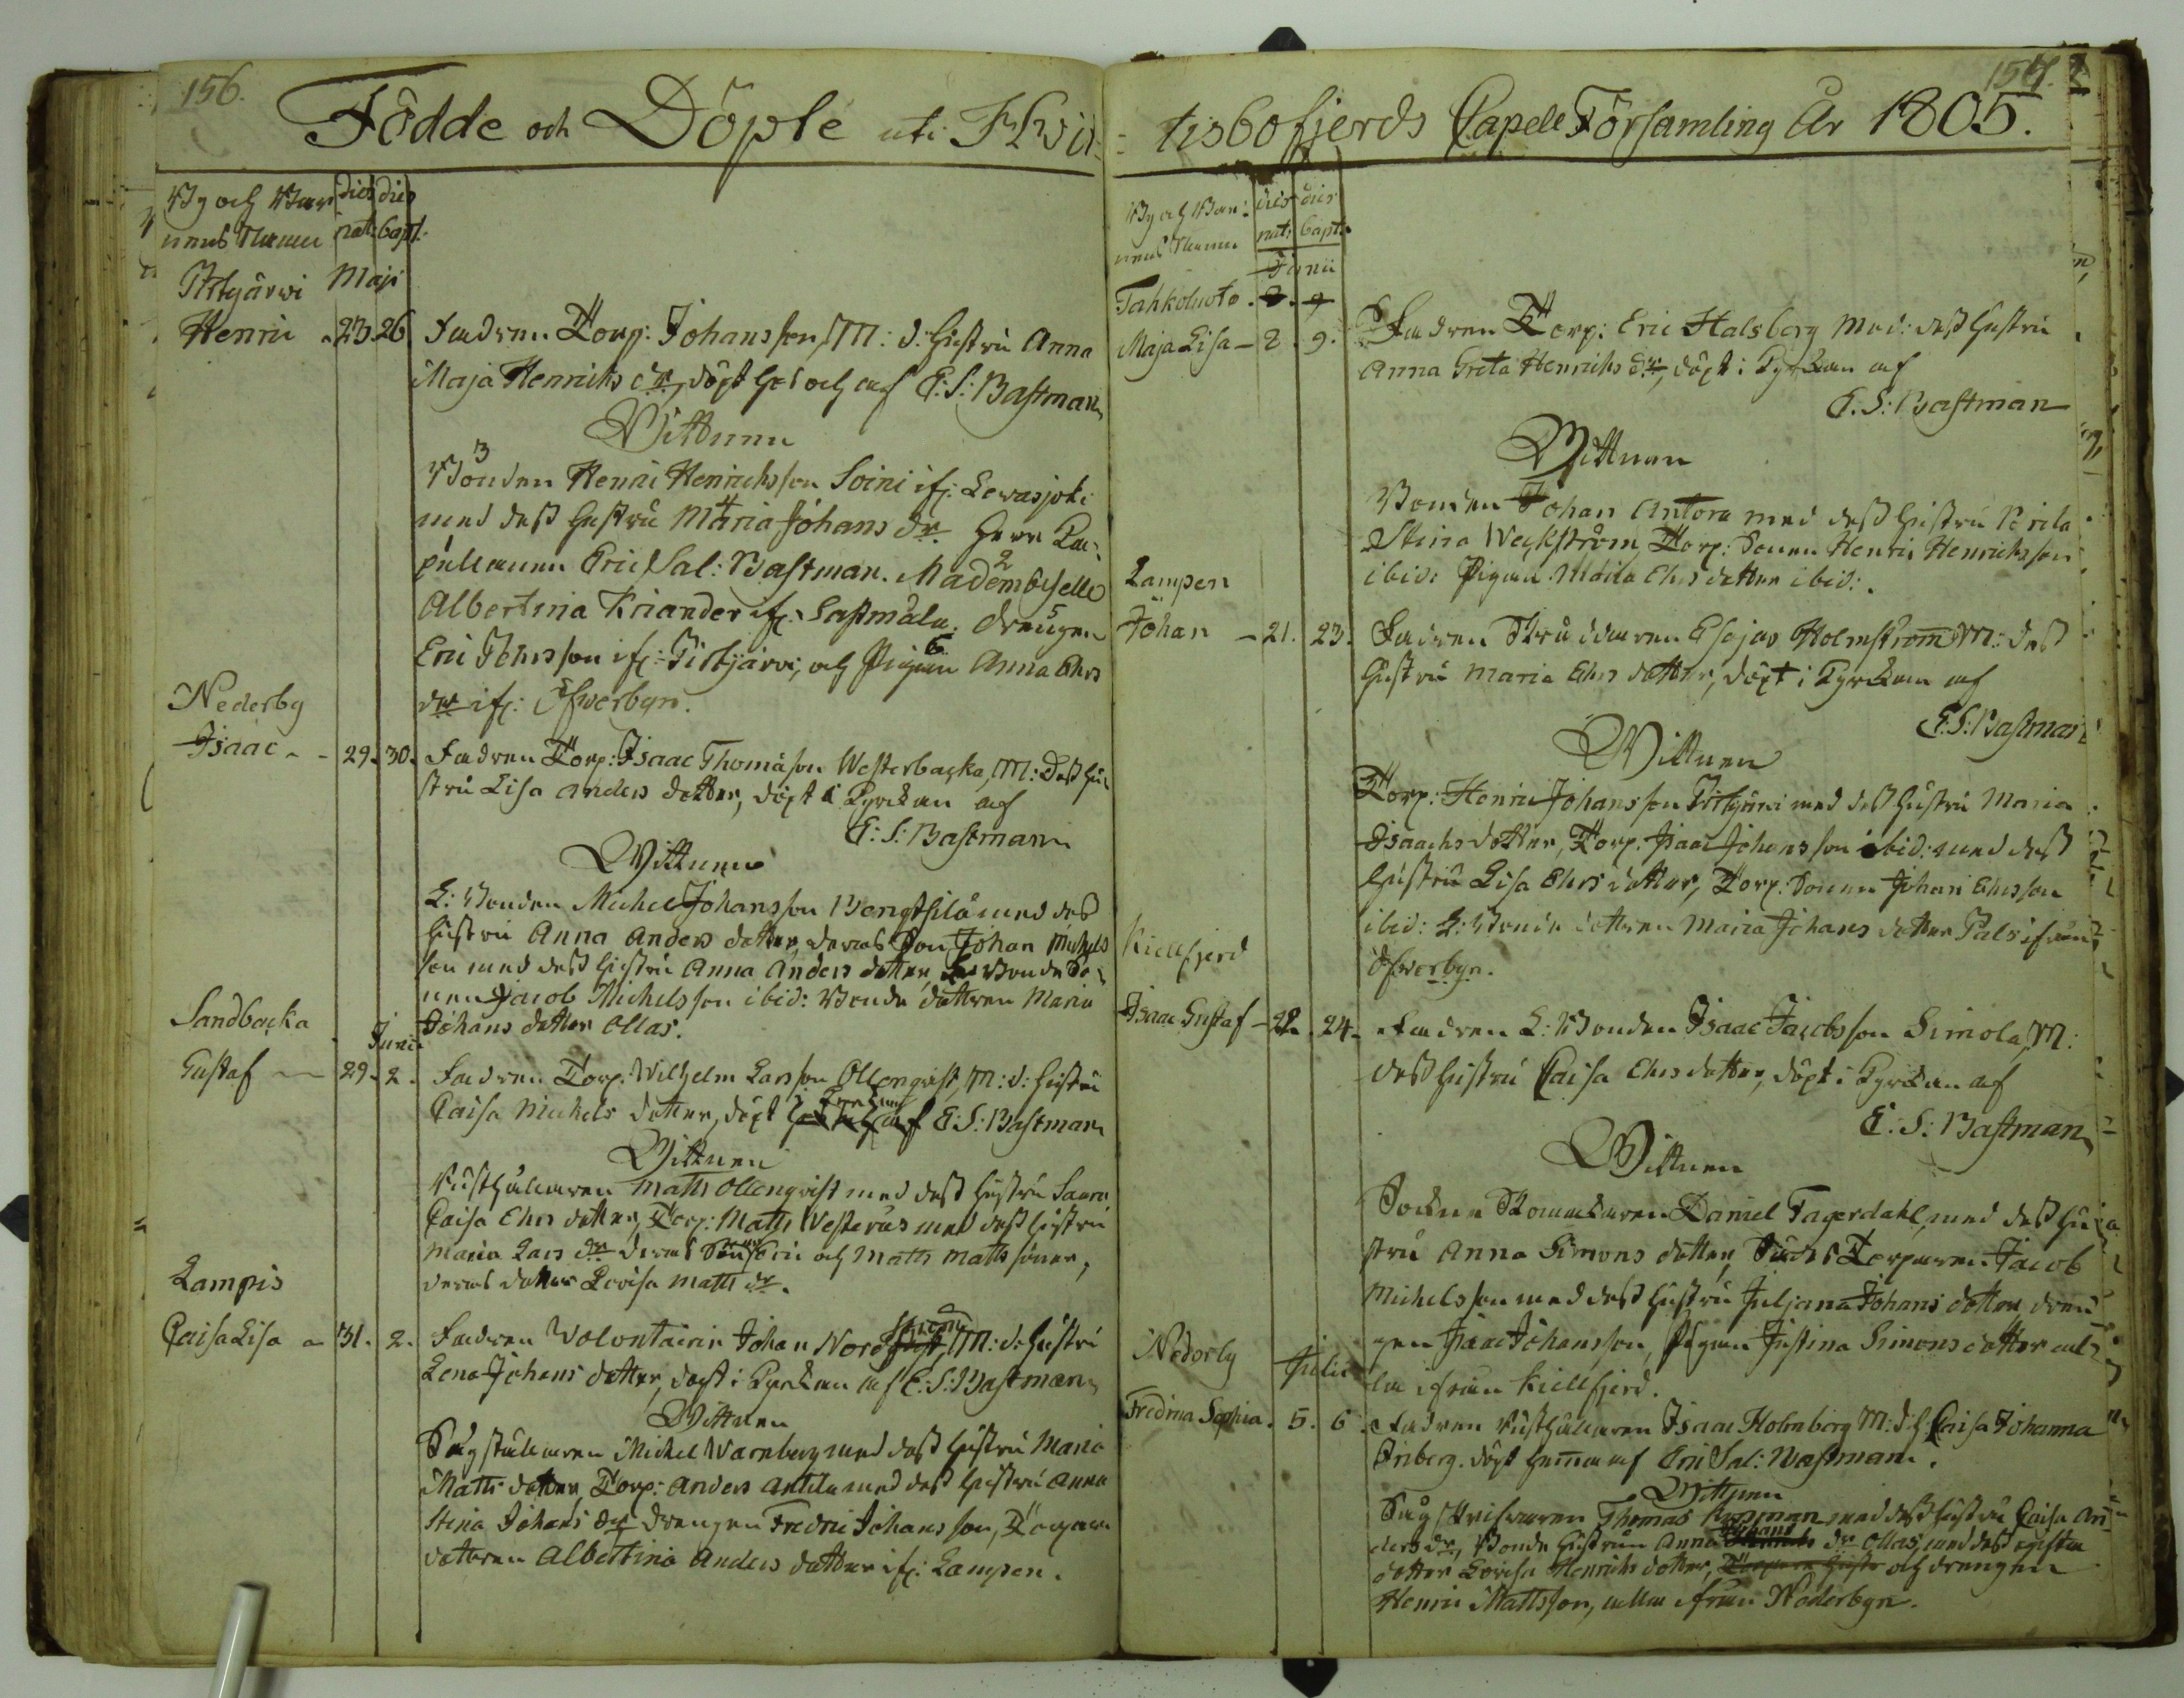 156.
Födde och Döpte uti Hvit-
By och Bar dies dies
nens Namn nat: bapt:
Itjärwi Maji
Henric 23. 26. Fadren Torp: Johansson, M: d: Hustru Anna
Maja Henrics dr, döpt af E: S: Bastman
Wittnen
Bonden Henric Henrichsson Soini if: Lewasjoki
med dess hustru Maria Johans dr. Herr Ca-
pellanen Eric Sal: Bastman. Mademoiselle
Albertina Kriander if: Sastmåla. drengen
Eric Johsson if: och Pigan Anna Ehrs
dr if: Öfwerbyn.
Nederby
Isaac - - 29. 30. Fadren Torp: Isaac Thomasson Westerbacka, M: Dess hu-
stru Lisa Anders dotter, döpt i Kyrkan af
E: S: Bastman
Wittnen
L: Bonden Michel Johansson Bengtsilä med dess
hustru Anna Anders dotter, deras Son Johan Michels
son med dess hustru Anna Anders dotter, Bonde So-
nen Jacob Michelsson ibid: Bonde dottren Maria
Johans dotter Ollas.
Sandbacka Junii
Gustaf 29. 2. Fadren Torp: Wilhelm Larsson Ollonqvist, M: d: hustru
Caisa Michels dotter, döpt Kyrkan af E: S: Bastman
Wittnen
Rusthållaren Matts Ollonqvist med dess hustru Saara
Caisa Ehrs dotter, Torp: Matts Westerås med dess hustru
Maria Lars dr deras Söner Eric och Matts Matts söner,
deras dotter Lovisa Matts dr.
Lampis
Caisa Lisa 31. 2. Fadren Volontairen Johan Nordström, M: d: hustru
Lena Johans dotter, döpt i Kyrkan af E: S: Bastman
Wittnen
Michel Warnberg med dess hustru Maria
Matts dotter, Torp: Anders Anttila med dess hustru Anna
Stina Johans dr drengen Fredric Johansson, Torpare
dottren Albertina Anders dotter if: Lampen.
157.
tisbofjerds Capell Församling År 1805.
By och Bar- dies dies
nens Namn nat: bapt:
Junii
Tahkoluoto. 2. 9.
Maja Lisa - 2. 9. Fadren Torp: Eric Halsberg med: dess hustru
Anna Greta Henrichs dr, döpt i Kyrkan af
E. S: Bastman
Wittnen
Bonden Johan Antora med dess hustru
Stina Weckström, Torp: Sonen Henric Henrichsson
ibid: Pigan Maria Ehrs dotter ibid:.
Lampen
Johan - 21. 23. Fadren Skräddaren Esajas Holmström M: dess
hustru Maria Ehrs dotter, döpt i Kyrkan af
E: S: Bastman
Wittnen
Torp: Henric Johansson med dess hustru Maria
Isaachs dotter, Torp. Isaac Johansson ibid: med dess
hustru Lisa Ehrs dotter, Torp: Sonen Johan Ehrsson
ibid: L: Bonde dottren Maria Johans dotter Pals ifrån
Öfwerbyn.
Kiellfjerd
Isaac Gustaf - 22. 24. Fadren L: Bonden Isaac Jacobsson Simola, M:
dess hustru Caisa Ehrs dotter, döpt i Kyrkan af
E: S: Bastman
Wittnen
Sockne Skomakaren Daniel Fagerdahl, med dess hu-
stru Anna Simons dotter, Torparen Jacob
Michelsson med dess hustru Juljana Johans dotter, dren-
gen Isaac Johansson, Pigan Justina Simons dotter al-
la ifrån Kiellfjerd.
Nederby Julii
Fredrica Sophia. 5. 6. Fadren Rusthållaren Isaac Holmberg M: d: h Caisa Johanna
Friberg. döpt hemma af Eric Sal: Bastman.
Wittnen
Thomas med dess hustru Caisa An-
ders dr, Bonde hustrun Anna Johans dr Ollas, med dess
dotter Lovisa Henrichs dotter, och drengen
Henric Mattsson, alla ifrån Nederbyn.